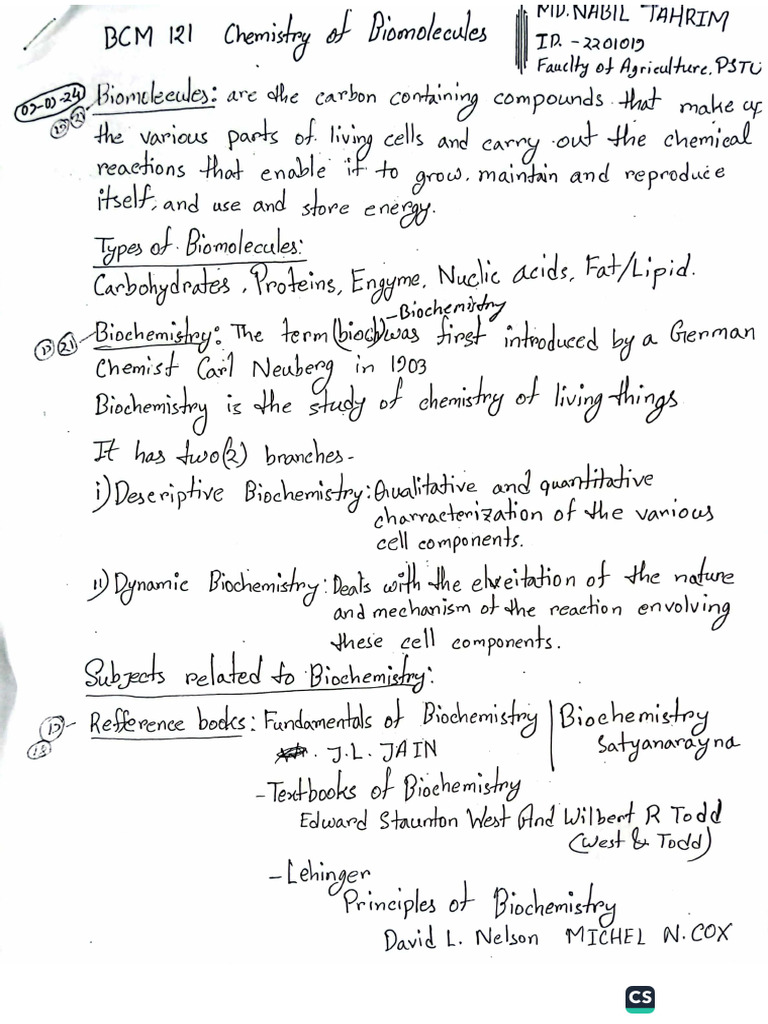 BCM 121 Chemistry of Biomolecules
MD. NABIL TAHRIM
ID. -2201019
Fauclty of Agriculture, PSTU
Biomolecules: are the carbon containing compounds that make up
the various parts of living cells and carry out the chemical
reactions that enable it to grow, maintain and reproduce
itself, and use and store energy.
Types of Biomolecules:
Carbohydrates, Proteins, Engyme, Nuclic acids, Fat/Lipid.
-Biochemistry
21 Biochemistry: The term (bioch) was first introduced by a German
Chemist Carl Neuberg in 1903
Biochemistry is the study of chemistry of living things
It has two(2) branches-
i) Descriptive Biochemistry: Qualitative and quantitative
charracterization of the various
cell components.
ii) Dynamic Biochemistry: Deals with the of the nature
and mechanism of the reaction envolving
these cell components.
Subjects related to Biochemistry:
Refference books: Fundamentals of Biochemistry | Biochemistry
J.L. JAIN
Satyanarayna
-Textbooks of Biochemistry
Edward Staunton West And Wilbert R Todd
(West & Todd)
-Lehinger
Principles of Biochemistry
David L. Nelson MICHEL N. COX
CS